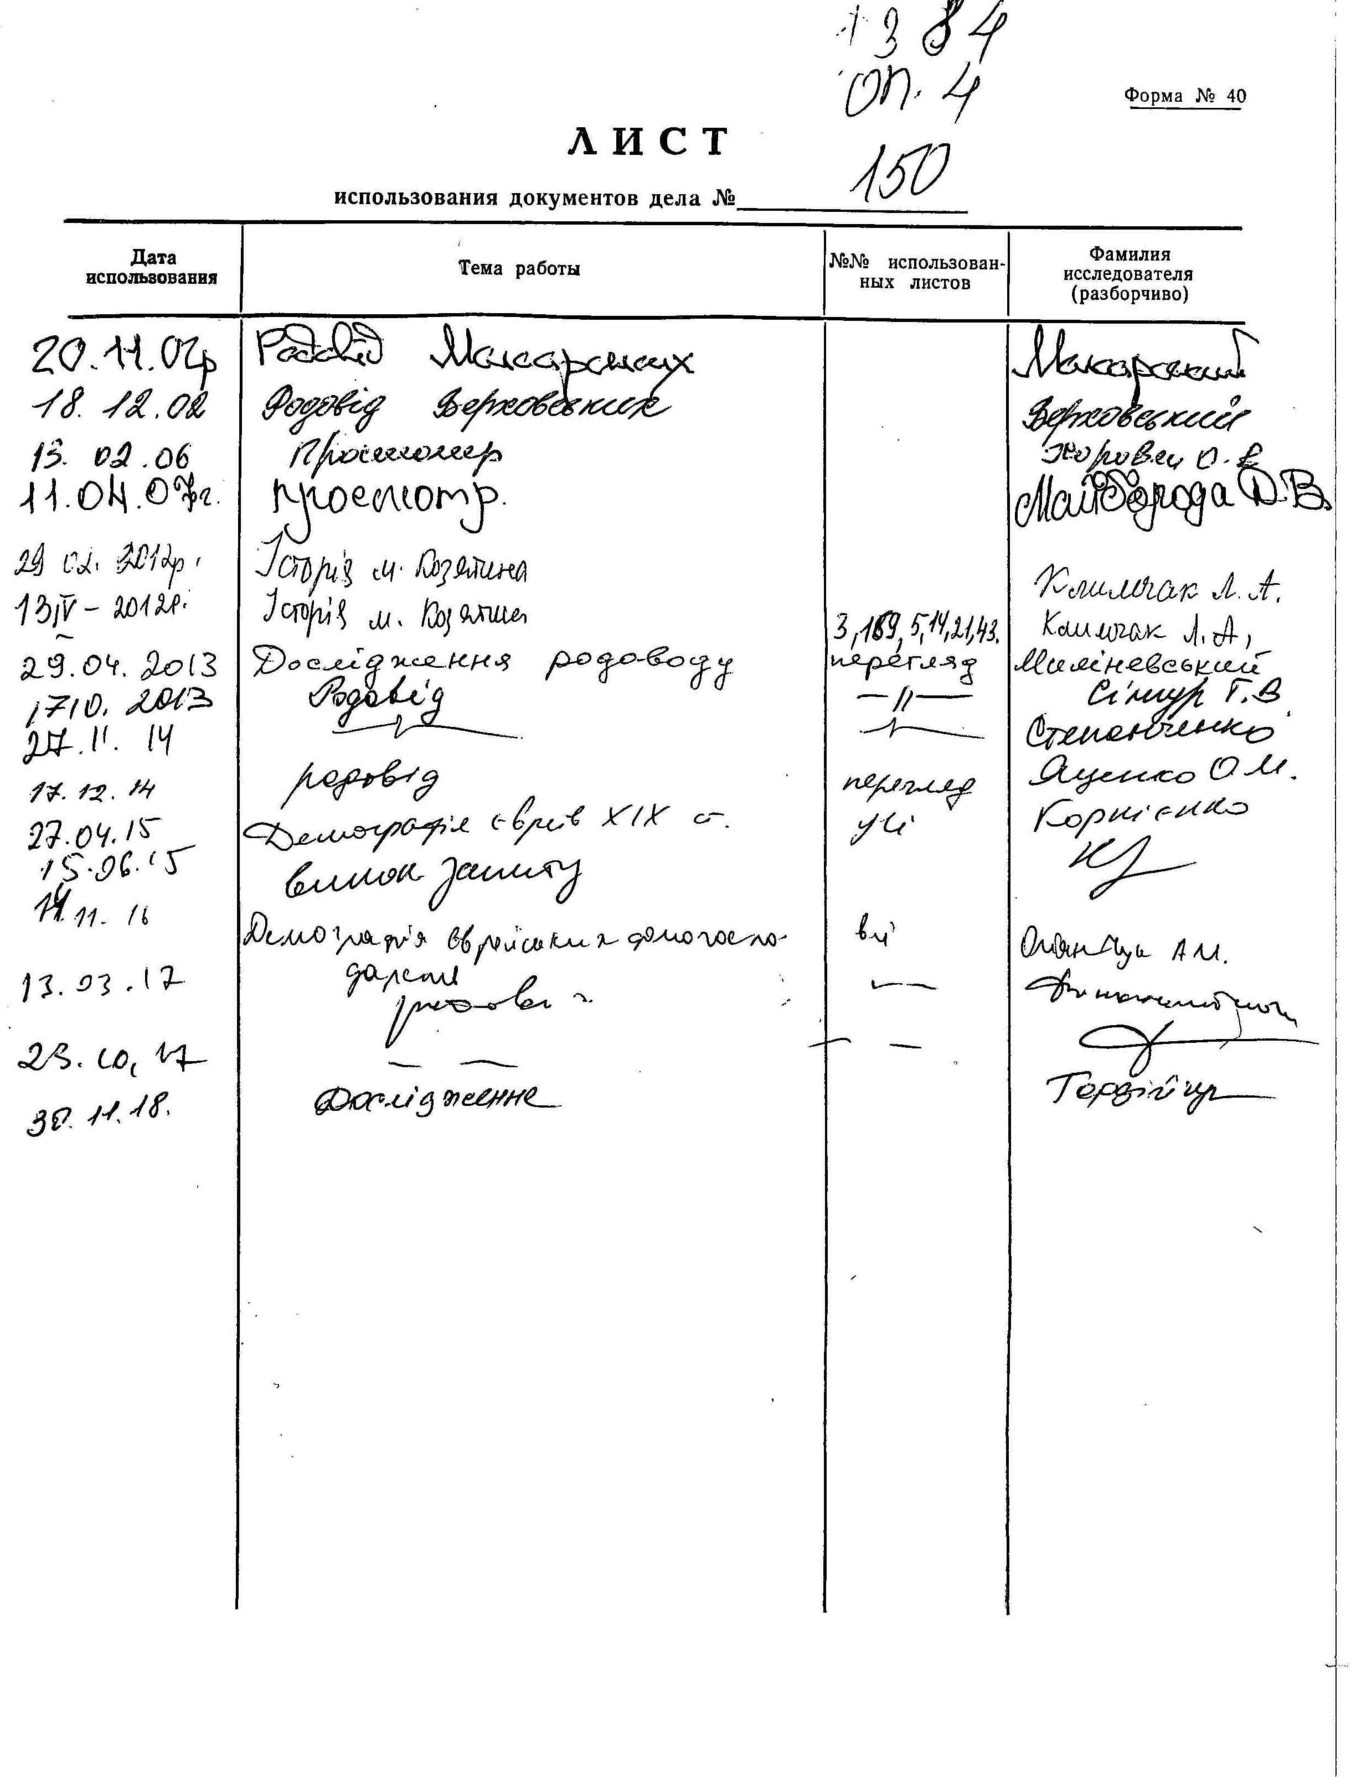 384
оп. 4
Форма № 40
ЛИСТ
150
использования документов дела №
Дата использования
Тема работы
№№ использован-
ных листов
Фамилия
исследователя
(разборчиво)
20.11.02р Родовід Макарських Макарський
18.12.02 Родовід Верховських Верховський
13.02.06 Просмотр О.В
11.04.07г. просмотр. Майборода Д.В.
29 02. 2012р. Історія м. Козятина Климчак Л.А.
13/IV-2012р. Історія м. Козятин 3, 169, 5, 14, 21, 43. Климчак Л.А.
29.04.2013 Дослідження родоводу перегляд Миліневський
1710.2013 Родовід —||— Г.В
27.11.14 Степанченко
17.12.14 родовід перегляд Яценко О.М.
27.04.15 Демографія євреїв XIX ст. усі Корнієнко
15.06.15 викон. запиту
14.11.16 Демографія єврейських домогоспо-
дарств всі А.М.
13.03.17
23.10.17 — — — —
30.11.18. Дослідження Гордійчук